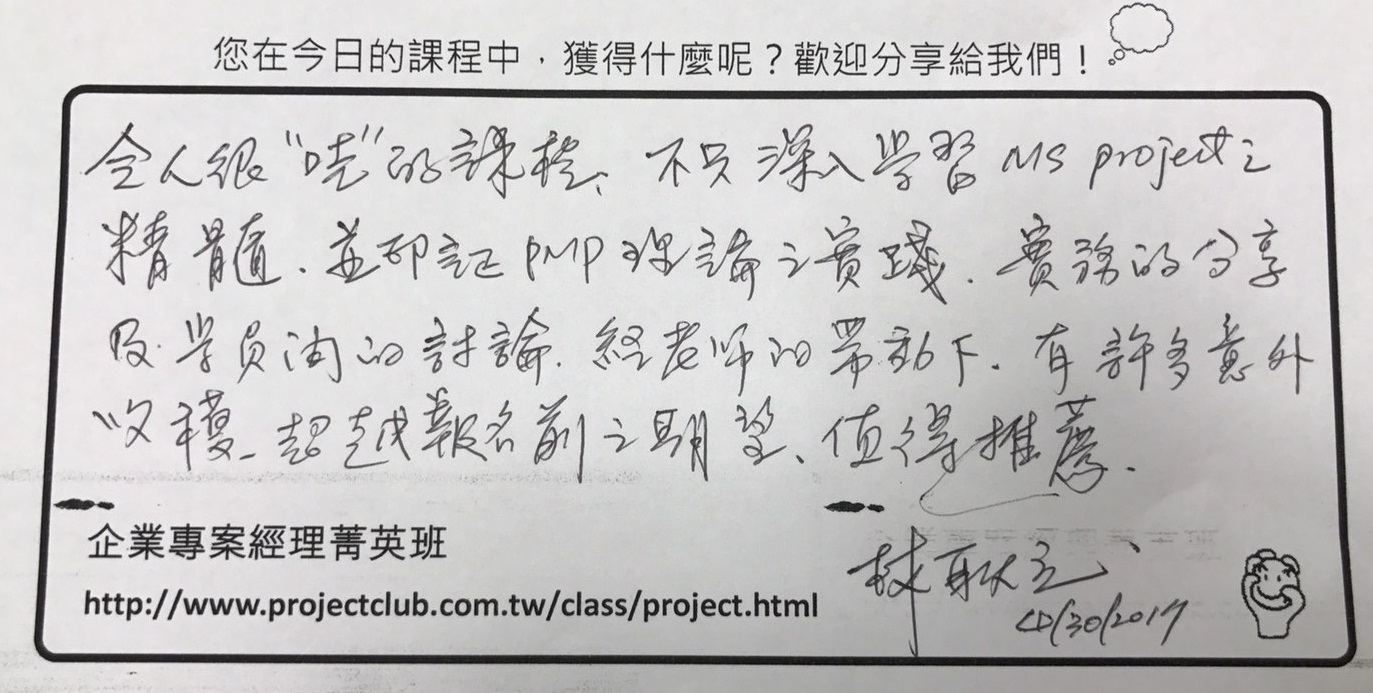 您在今日的課程中，獲得什麼呢？歡迎分享給我們！
令人很"哇"的課程、不只深入學習 MS project 之
精髓．並印証 PMP 理論之實踐．實務的分享
及學員間的討論．經老師的帶動下．有許多意外
收穫_超越報名前之期望、值得推薦．
企業專案經理菁英班
http://www.projectclub.com.tw/class/project.html
林
/30/2017